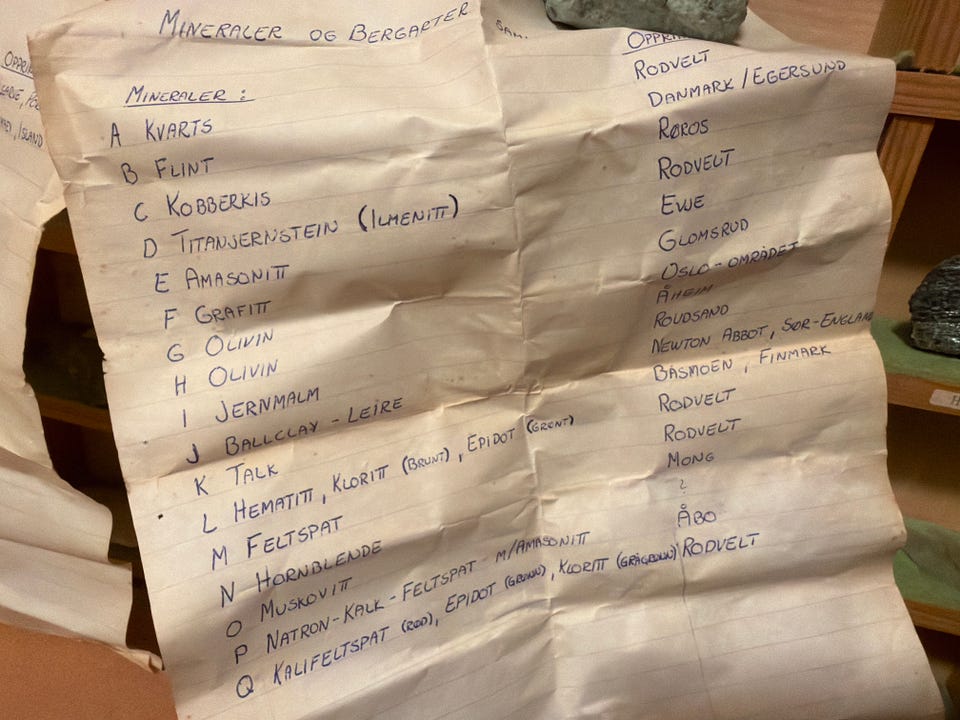 MINERALER OG BERGARTER SAM.
MINERALER :
A KVARTS RODVELT
B FLINT DANMARK / EGERSUND
C KOBBERKIS RØROS
D TITANJERNSTEIN (ILMENITT) RODVELT
E AMASONITT EVJE
F GRAFITT GLOMSRUD
G OLIVIN OSLO-OMRÅDET
H OLIVIN ÅHEIM
I JERNMALM ROUDSAND
J BALLCLAY - LEIRE NEWTON ABBOT, SØR-ENGLAND
K TALK BASMOEN, FINMARK
L HEMATITT, KLORITT (BRUNT), EPIDOT (GRØNT) RODVELT
M FELTSPAT RODVELT
N HORNBLENDE MONG
O MUSKOVITT ?
P NATRON-KALK-FELTSPAT M/AMASONITT ÅBO
Q KALIFELTSPAT (RØD), EPIDOT (GRØNN), KLORITT (GRÅGRØNN) RODVELT